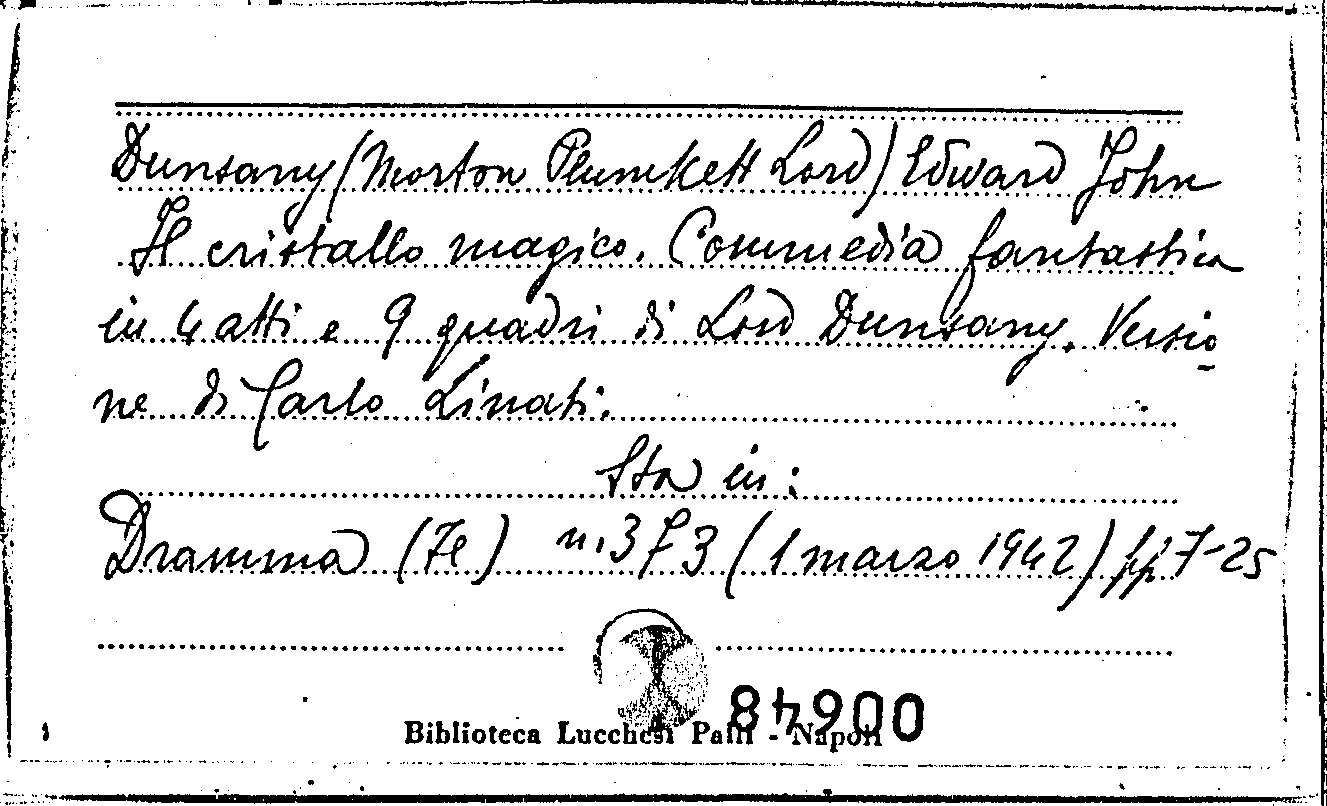 Dunsany (Morton Plunkett Lord) Edward John
Il cristallo magico. Commedia fantastica
in 4 atti e 9 quadri di Lord Dunsany. Versio-
ne di Carlo Linati.
Sta in:
Dramma (Il) n. 373 (1 marzo 1942) pp. 7-25
Biblioteca Lucchesi Palli - Napoli